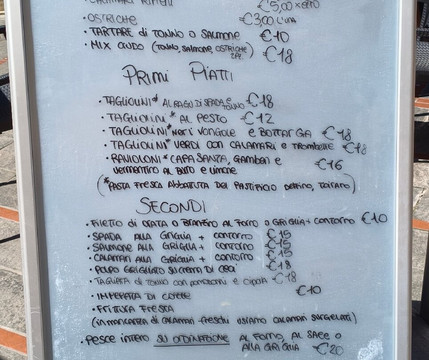 €5,00 x ETTO
• OSTRICHE €3,00 L'UNA
• TARTARE di TONNO o SALMONE €10
• MIX CRUDO (TONNO, SALMONE, OSTRICHE €18
PRIMI PIATTI
• TAGLIOLINI* AL RAGÙ DI SPADA e TONNO €18
• TAGLIOLINI* AL PESTO €12
• TAGLIOLINI* NERI VONGOLE e BOTTARGA €18
• TAGLIOLINI* VERDI CON CALAMARI e TROMBETTE €18
• RAVIOLONI* CAPASANZA, GAMBERI e €16
VERMENTINO AL BURRO e LIMONE
(*PASTA FRESCA ABBATTUTA DEL PASTIFICIO TOIRANO)
SECONDI
• FILETTO di ORATA O BRANZINO AL FORNO O GRIGLIA + CONTORNO €10
• SPADA ALLA GRIGLIA + CONTORNO €15
• SALMONE ALLA GRIGLIA + CONTORNO €15
• CALAMARI ALLA GRIGLIA + CONTORNO €15
• POLPO GRIGLIATO SU CREMA DI CECI €18
• TAGLIATA di TONNO CON POMODORI e CIPOLLA €18
• IMPEPATA DI COZZE €10
• FRITTURA FRESCA
(IN MANCANZA di CALAMARI FRESCHI USIAMO CALAMARI SURGELATI)
• PESCE INTERO SU ORDINAZIONE AL FORNO, AL SALE O
ALLA GRIGLIA €20